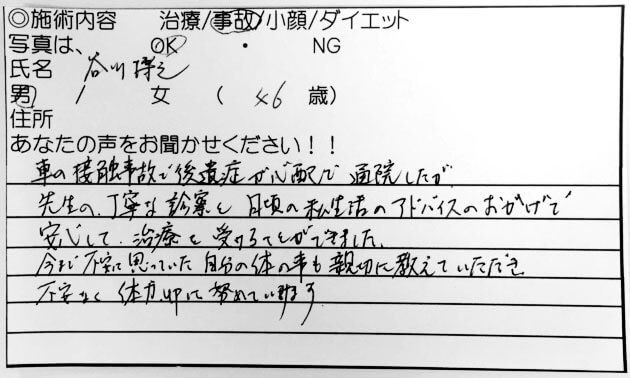 ◎施術内容 治療/事故/小顔/ダイエット
写真は、 OK ・ NG
氏名 谷川
男 / 女 ( 46 歳)
住所
あなたの声をお聞かせください!!
車の接触事故で後遺症が心配で 通院したが
先生の、丁寧な診察と 日頃の私生活のアドバイスのおかげで
安心して、治療を受けることができました。
今まで不安に思っていた自分の体の事も親切に教えていただき
不安なく 体力 に努めています